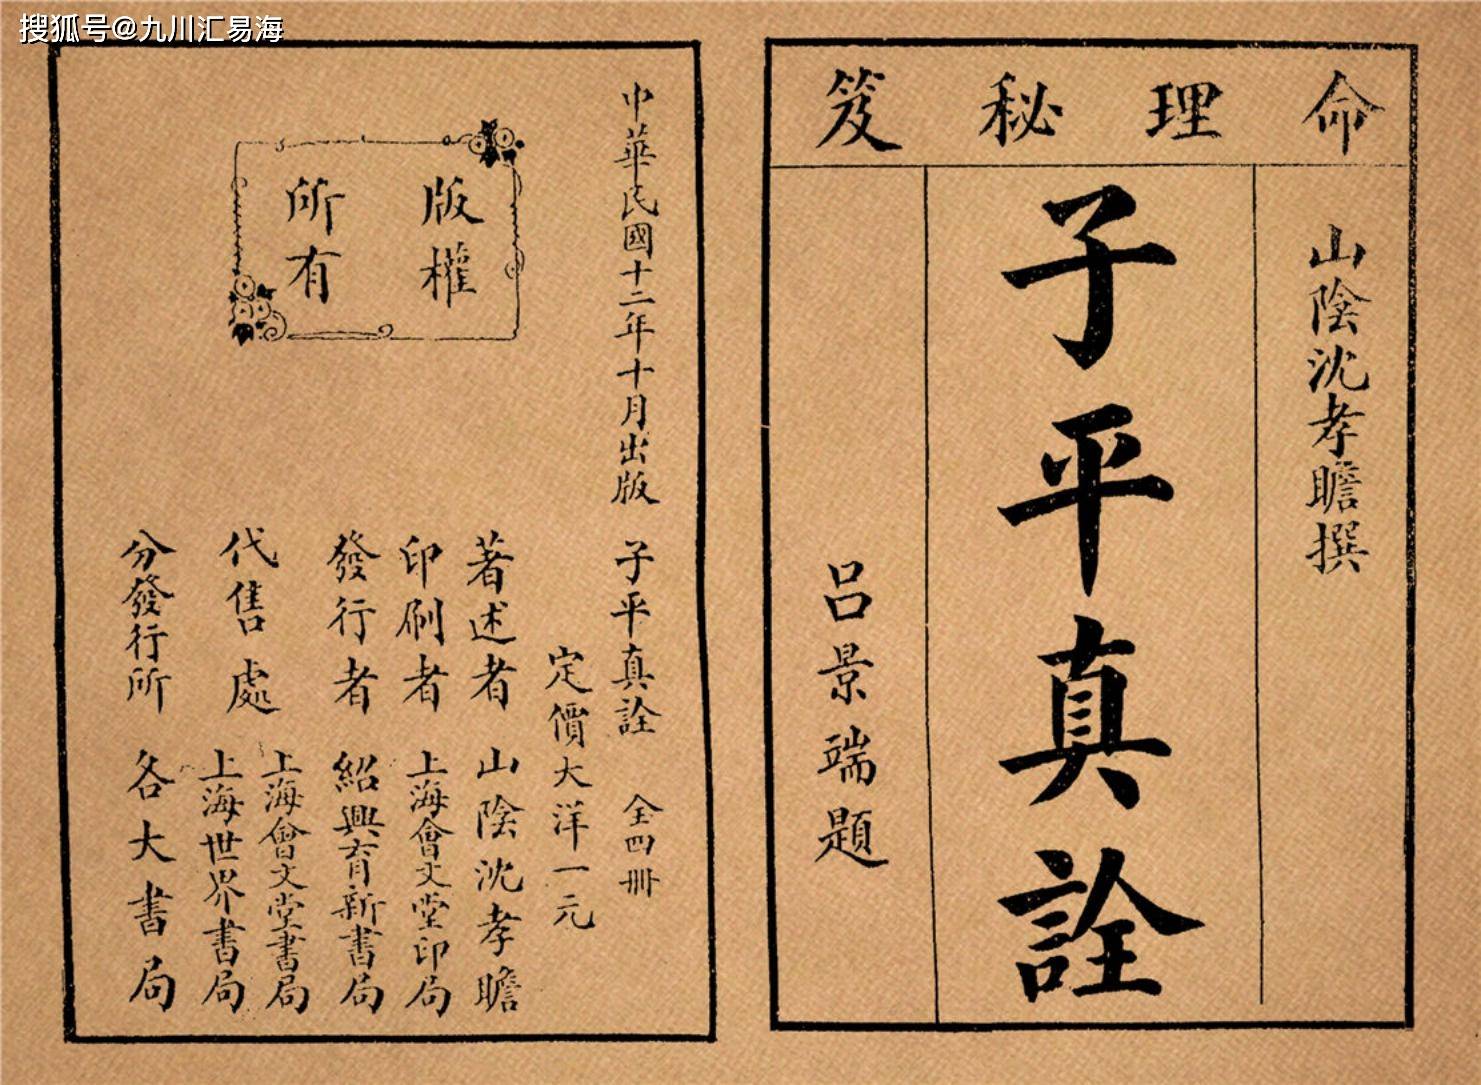 搜狐号@九川汇易海
命理秘笈
山陰沈孝瞻撰
子平真詮
呂景端題
中華民國十二年十月出版
子平真詮 全四冊
定價大洋一元
版權
所有
著述者 山陰沈孝瞻
印刷者 上海會文堂印局
發行者 紹興育新書局
代售處 上海會文堂書局
上海世界書局
分發行所 各大書局